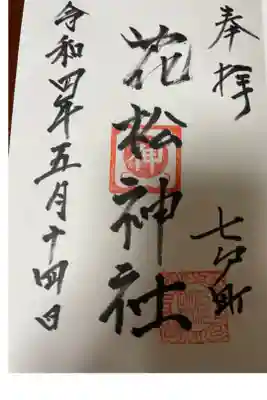 奉拝
七戸町
花松神社
令和四年五月十四日
神